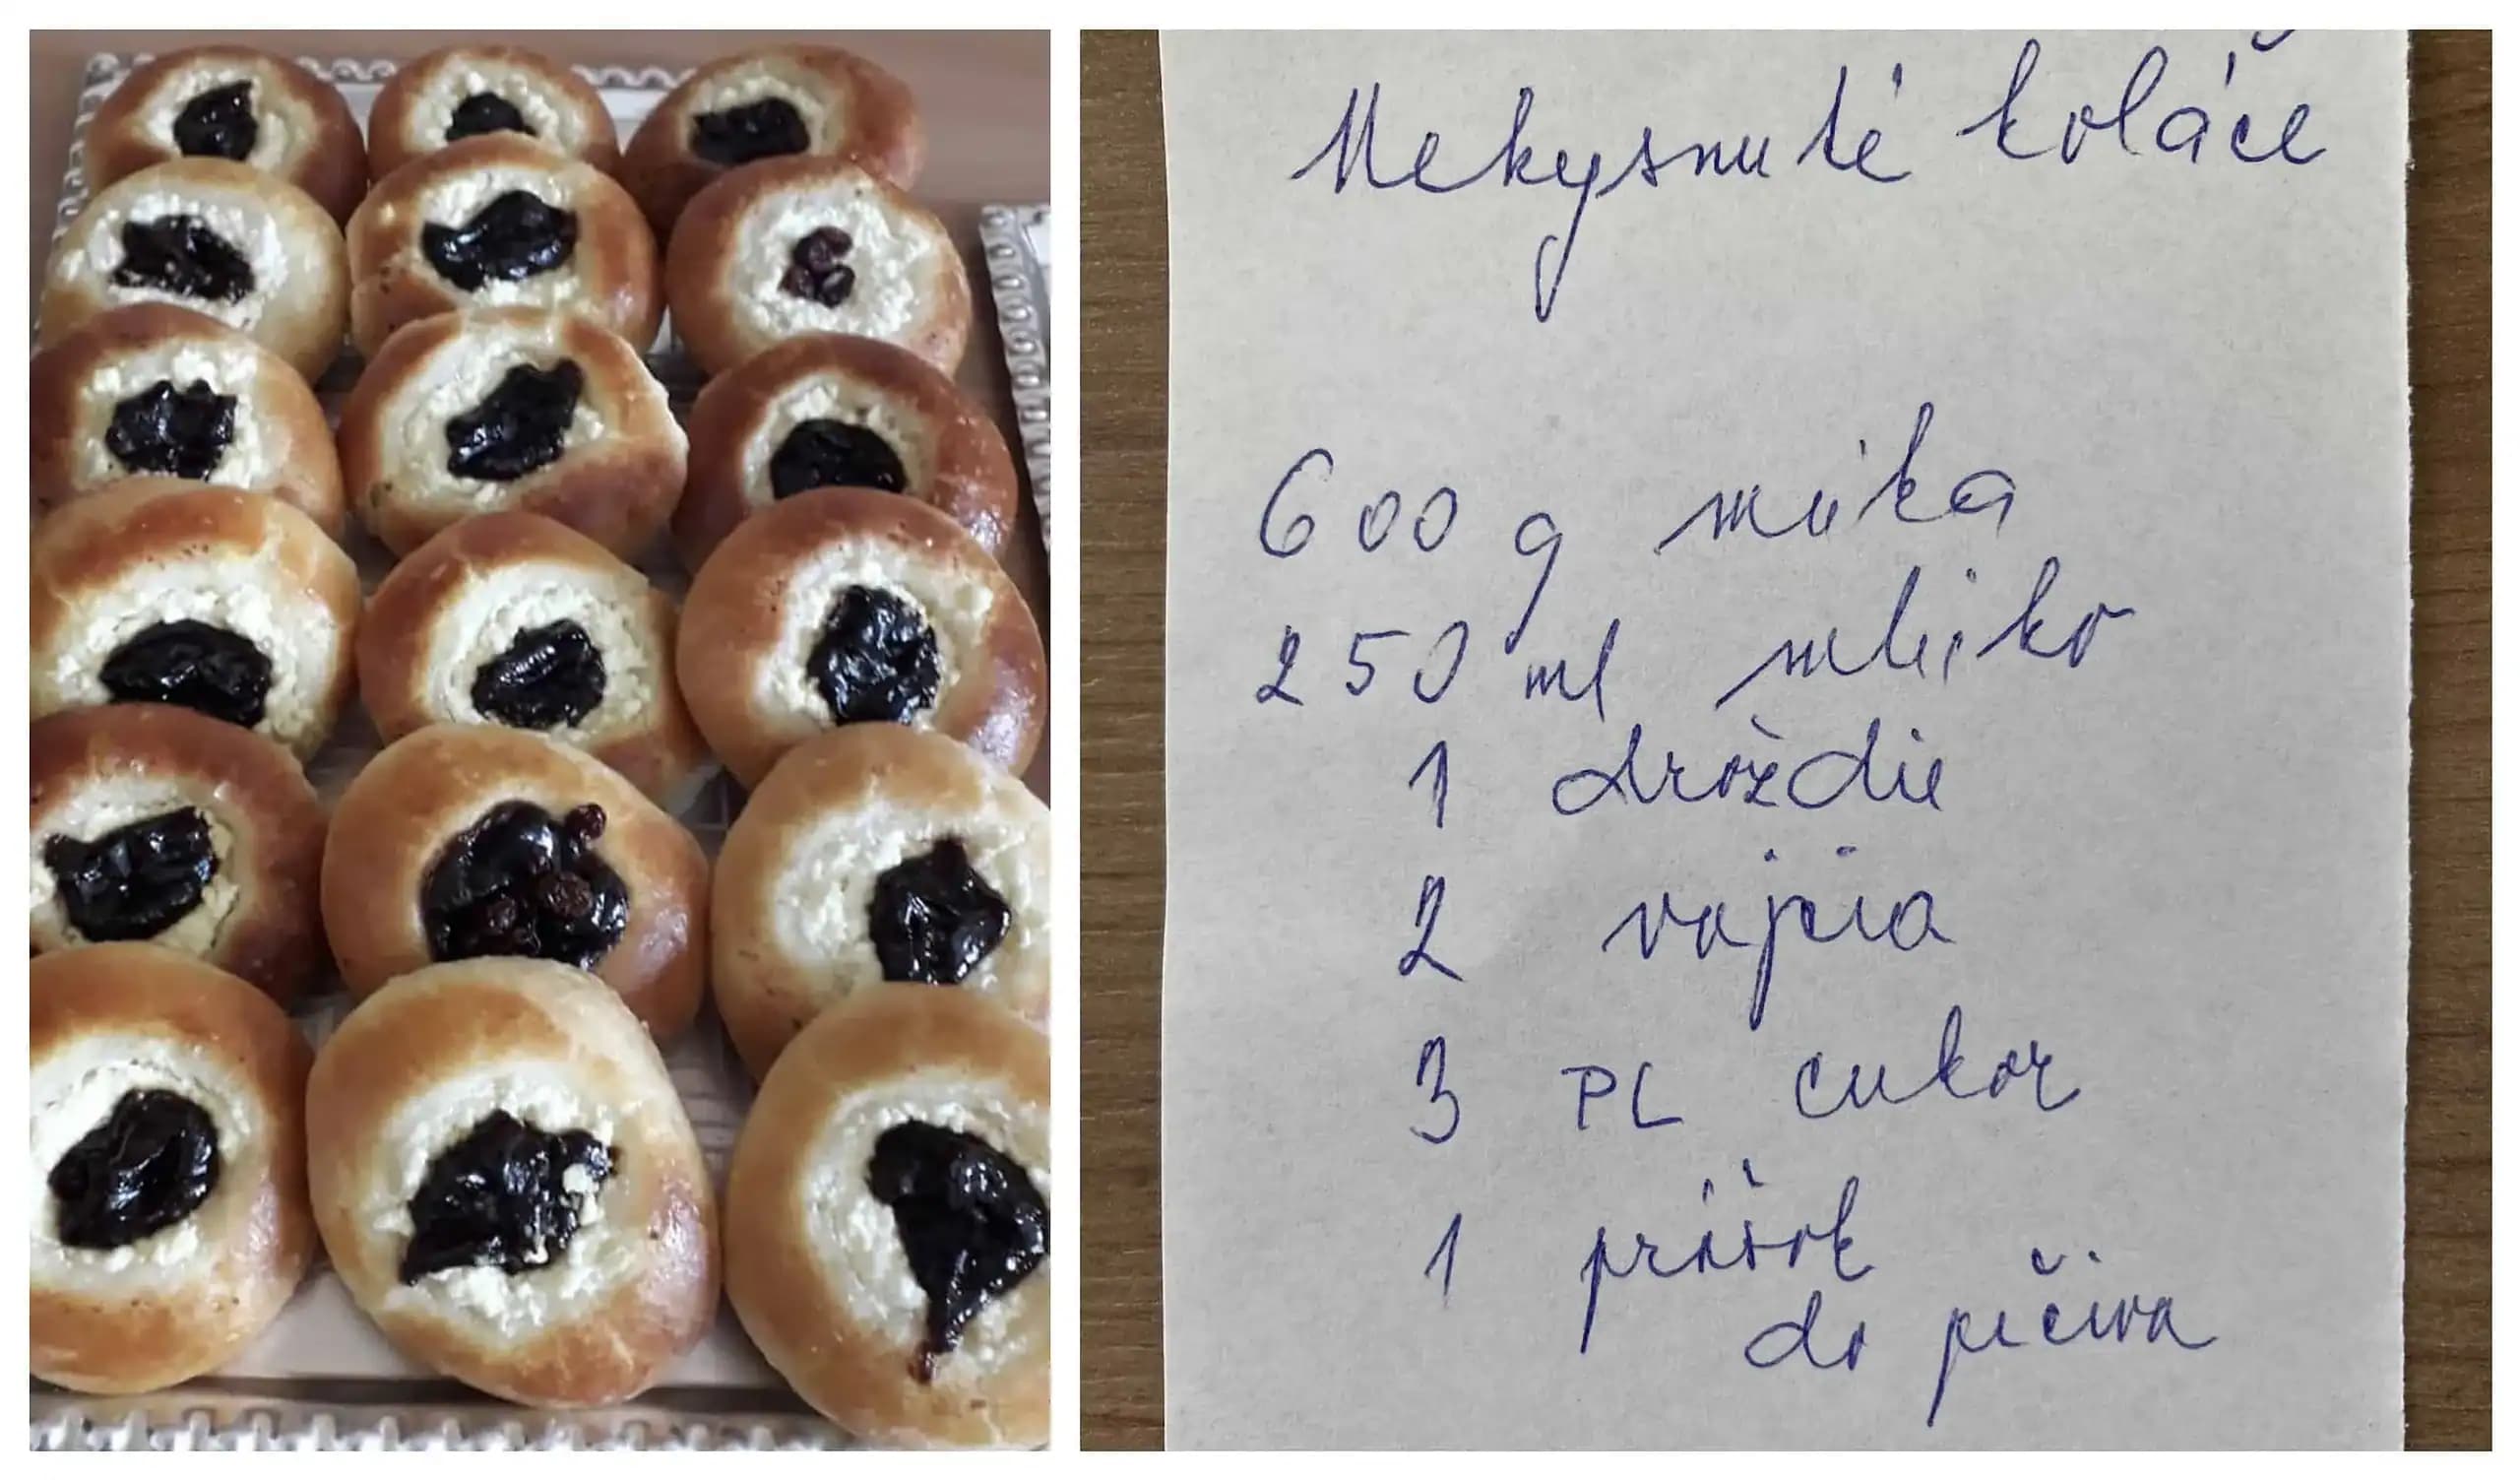 Nekysnuté koláče
600 g múka
250 ml mlieko
1 droždie
2 vajcia
3 PL cukor
1 prášok
do pečiva